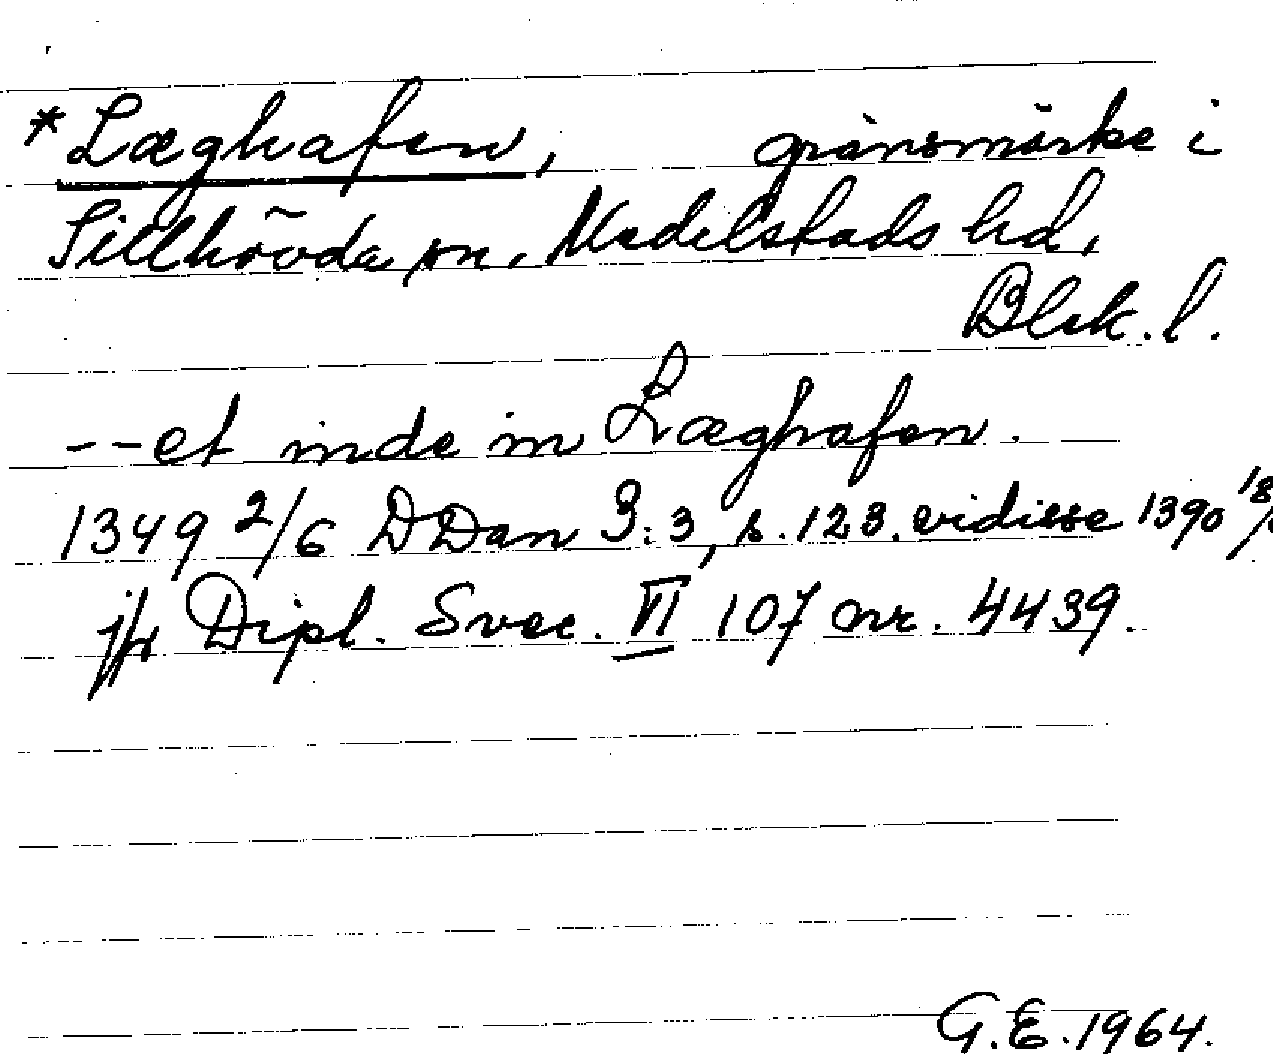 *Læghafen, gränsmärke i
Sillhövda sn, Medelstads hd,
Blek. l.
--et inde in Læghafen.
1349 2/6 DDan 3:3, s. 123. vidisse 1390 18/
jfr Dipl. Svec. VI 107 nr. 4439.
G.E. 1964.